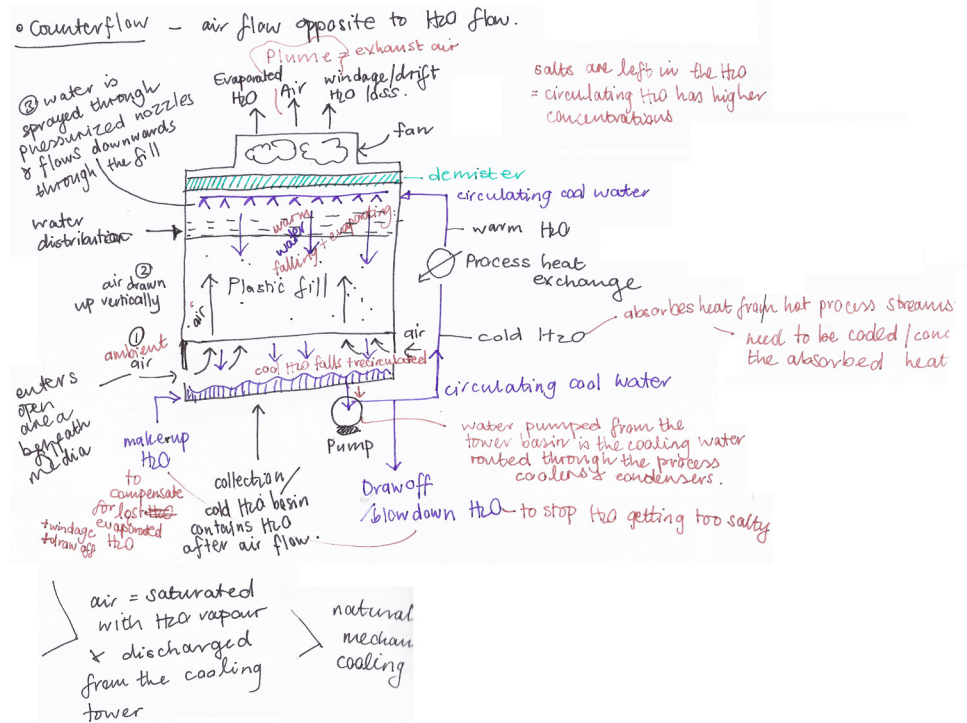 • Counterflow — air flow opposite to H2O flow.
Plume = exhaust air
Evaporated
H2O
Air
windage/drift
H2O loss.
salts are left in the H2O
= circulating H2O has higher
concentrations
③ water is
sprayed through
pressurized nozzles
& flows downwards
through the fill
fan
demister
circulating cool water
water
distribution
warm
water
falling + evaporating
warm H2O
Process heat
exchange
② 
air drawn
up vertically
Plastic fill
air
absorbes heat from hot process streams
need to be cooled/conc
the absorbed heat
cold H2O
①
ambient
air
enters
open
area
beneath
media
air
cool H2O falls + recirculated
circulating cool water
makeup
H2O
Pump
water pumped from the
tower basin is the cooling water
routed through the process
coolers & condensers.
to
compensate
for lost H2O
evaporated
H2O
+windage
+draw off
collection/
cold H2O basin
contains H2O
after air flow.
Draw off
/blowdown H2O – to stop H2O getting too salty
air = saturated
with H2O vapour
& discharged
from the cooling
tower
natural
mechan
cooling